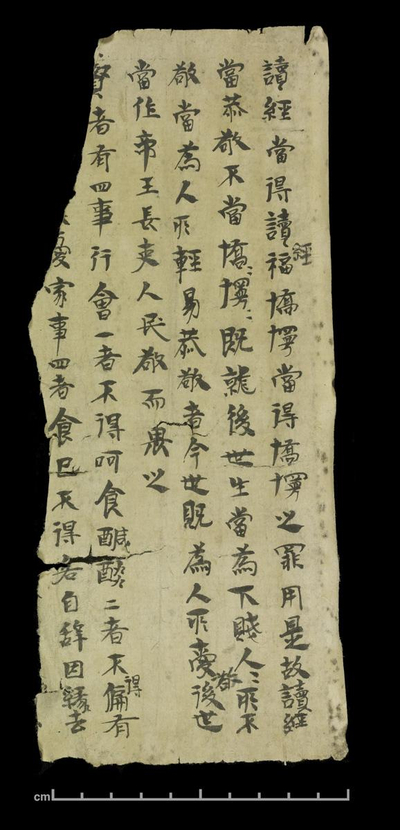 讀經當得讀經福憍慢當得憍慢之罪用是故讀經
當恭敬不當憍〻慢〻既就後世生當為下賤人〻所不
敬當為人所輕易恭敬者今世既為人所愛敬後世
當作帝王長吏人民敬而畏之
賢者有四事行會一者不得呵食醎酢二者不得偏有
憂家事四者食已不得若自辞因緣去
cm